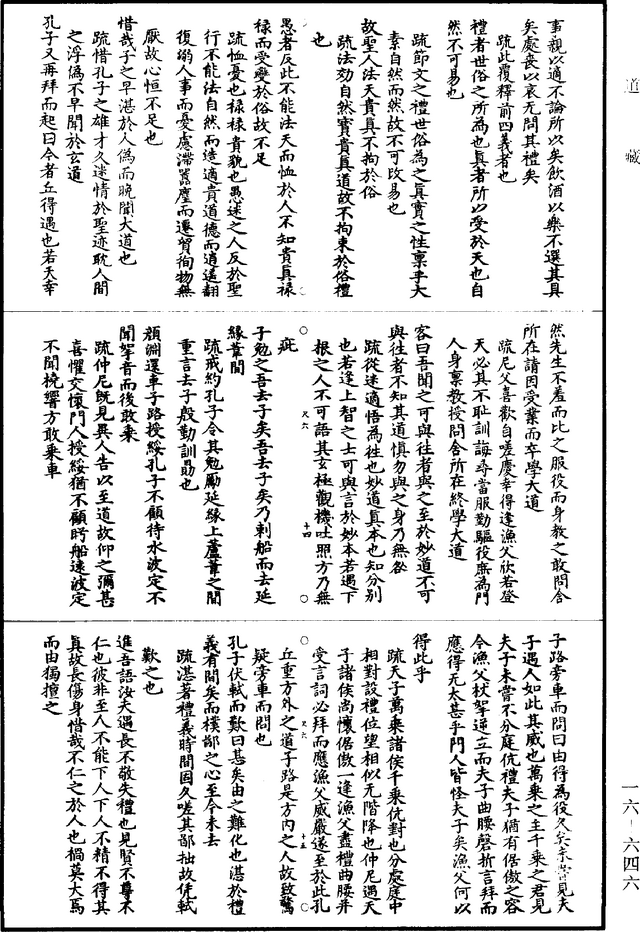 道藏
事親以適不論所以矣飲酒以樂不選其具
矣處喪以哀无問其禮矣
疏此覆釋前四義者也
禮者世俗之所為也真者所以受於天也自
然不可易也
疏節文之禮世俗為之真實之性稟乎大
素自然而然故不可改易也
故聖人法天貴真不拘於俗
疏法効自然寶貴真道故不拘束於俗禮
也
愚者反此不能法天而恤於人不知貴真祿
祿而受變於俗故不足
疏恤憂也祿祿貴貌也愚迷之人反於聖
行不能法自然而造適貴道德而逍遙翻
復溺人事而憂慮滯囂塵而遷貿徇物無
厭故心恒不足也
惜哉子之早湛於人偽而晚聞大道也
疏惜孔子之雄才久迷情於聖迹耽人間
之浮偽不早聞於玄道
孔子又再拜而起曰今者丘得遇也若天幸
然先生不羞而比之服役而身教之敢問舍
所在請因受業而卒學大道
疏尼父喜歡自嗟慶幸得逢漁父欣若登
天必其不恥訓誨尋當服勤驅役庶為門
人身稟教授問舍所在終學大道
客曰吾聞之可與往者與之至於妙道不可
與往者不知其道慎勿與之身乃無咎
疏從迷適悟為往也妙道真本也知分別
也若逢上智之士可與言於妙本若遇下
根之人不可語其玄極觀機吐照方乃無
疵
子勉之吾去子矣吾去子矣乃刺船而去延
緣葦間
疏戒約孔子令其勉勵延緣上蘆葦之間
重言去子殷勤訓勗也
顏淵還車子路授綏孔子不顧待水波定不
聞拏音而後敢乘
疏仲尼既見異人告以至道故仰之彌甚
喜懼交懷門人授綏猶不顧眄船遠波定
不聞橈響方敢乘車
子路旁車而問曰由得為役久矣未嘗見夫
子遇人如此其威也萬乘之主千乘之君見
夫子未嘗不分庭伉禮夫子猶有倨傲之容
今漁父杖拏逆立而夫子曲腰磬折言拜而
應得无太甚乎門人皆怪夫子矣漁父何以
得此乎
疏天子萬乘諸侯千乘伉對也分處庭中
相對設禮位望相似无階降也仲尼遇天
子諸侯尚懷倨傲一逢漁父盡禮曲腰并
受言詞必拜而應漁父威嚴遂至於此孔
丘重方外之道子路是方內之人故致驚
疑旁車而問也
孔子伏軾而歎曰甚矣由之難化也湛於禮
義有間矣而樸鄙之心至今未去
疏湛著禮義時間固久嗟其鄙拙故凭軾
歎之也
進吾語汝夫遇長不敬失禮也見賢不尊不
仁也彼非至人不能下人下人不精不得其
真故長傷身惜哉不仁之於人也禍莫大焉
而由獨擅之
一六–六四六